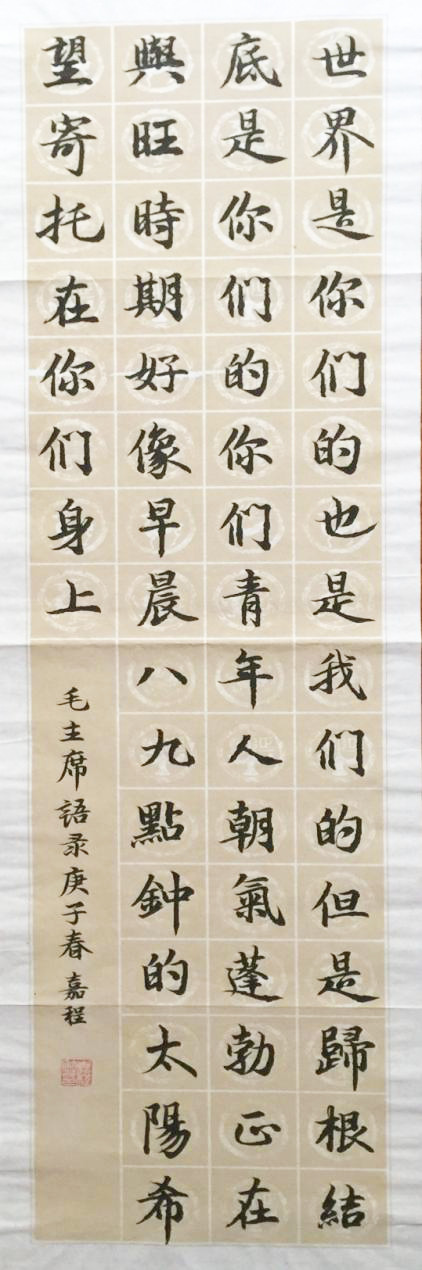 世界是你们的也是我们的但是歸根結
底是你们的你们青年人朝氣蓬勃正在
興旺時期好像早晨八九點鈡的太陽希
望寄托在你们身上
毛主席語录庚子春嘉程